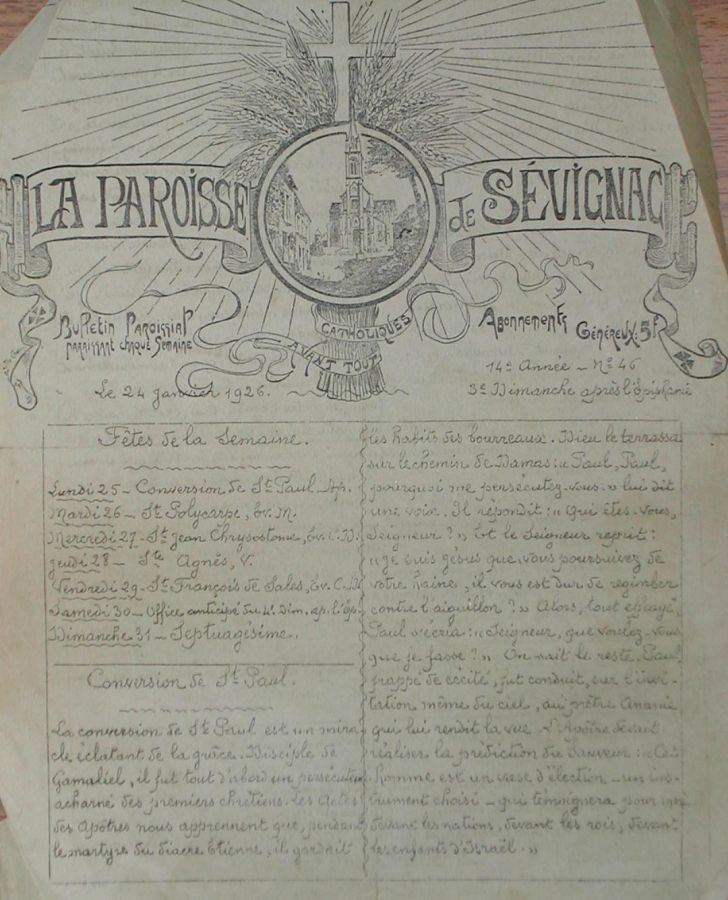 LA PAROISSE de SÉVIGNAC
Bulletin Paroissial
paraissant chaque Semaine
CATHOLIQUES
AVANT TOUT
Abonnements
Généreux: 5f
Le 24 janvier 1926.
14e Année - No 46
3e Dimanche après l'Épiphanie
Fêtes de la Semaine.
Lundi 25 - Conversion de St Paul, Ap.
Mardi 26 - St Polycarpe, Ev. M.
Mercredi 27 - St Jean Chrysostome, Ev. C. D.
Jeudi 28 - Ste Agnès, V.
Vendredi 29 - St François de Sales, Ev. C. D.
Samedi 30 - Office anticipé du 4e Dim. ap. l'Ép.
Dimanche 31 - Septuagésime.
Conversion de St Paul.
La conversion de St Paul est un mira-
cle éclatant de la grâce. Disciple de
Gamaliel, il fut tout d'abord un persécuteur
acharné des premiers chrétiens. Les Actes
des Apôtres nous apprennent que, pendant
le martyre du diacre Etienne, il gardait
les habits des bourreaux. Dieu le terrassa
sur le chemin de Damas: « Paul, Paul,
pourquoi me persécutez-vous. » lui dit
une voix. Il répondit: « Qui êtes-vous,
Seigneur? » Et le Seigneur reprit:
« Je suis Jésus que vous poursuivez de
votre haine, il vous est dur de regimber
contre l'aiguillon? » Alors, tout effrayé,
Paul s'écria: « Seigneur, que voulez-vous
que je fasse? » On sait le reste. Paul,
frappé de cécité, fut conduit, sur l'invi-
tation même du ciel, au prêtre Ananie
qui lui rendit la vue. L'Apôtre devait
réaliser la prédiction du Sauveur: « Cet
homme est un vase d'élection - un ins-
trument choisi - qui témoignera pour moi
devant les nations, devant les rois, devant
les enfants d'Israël. »